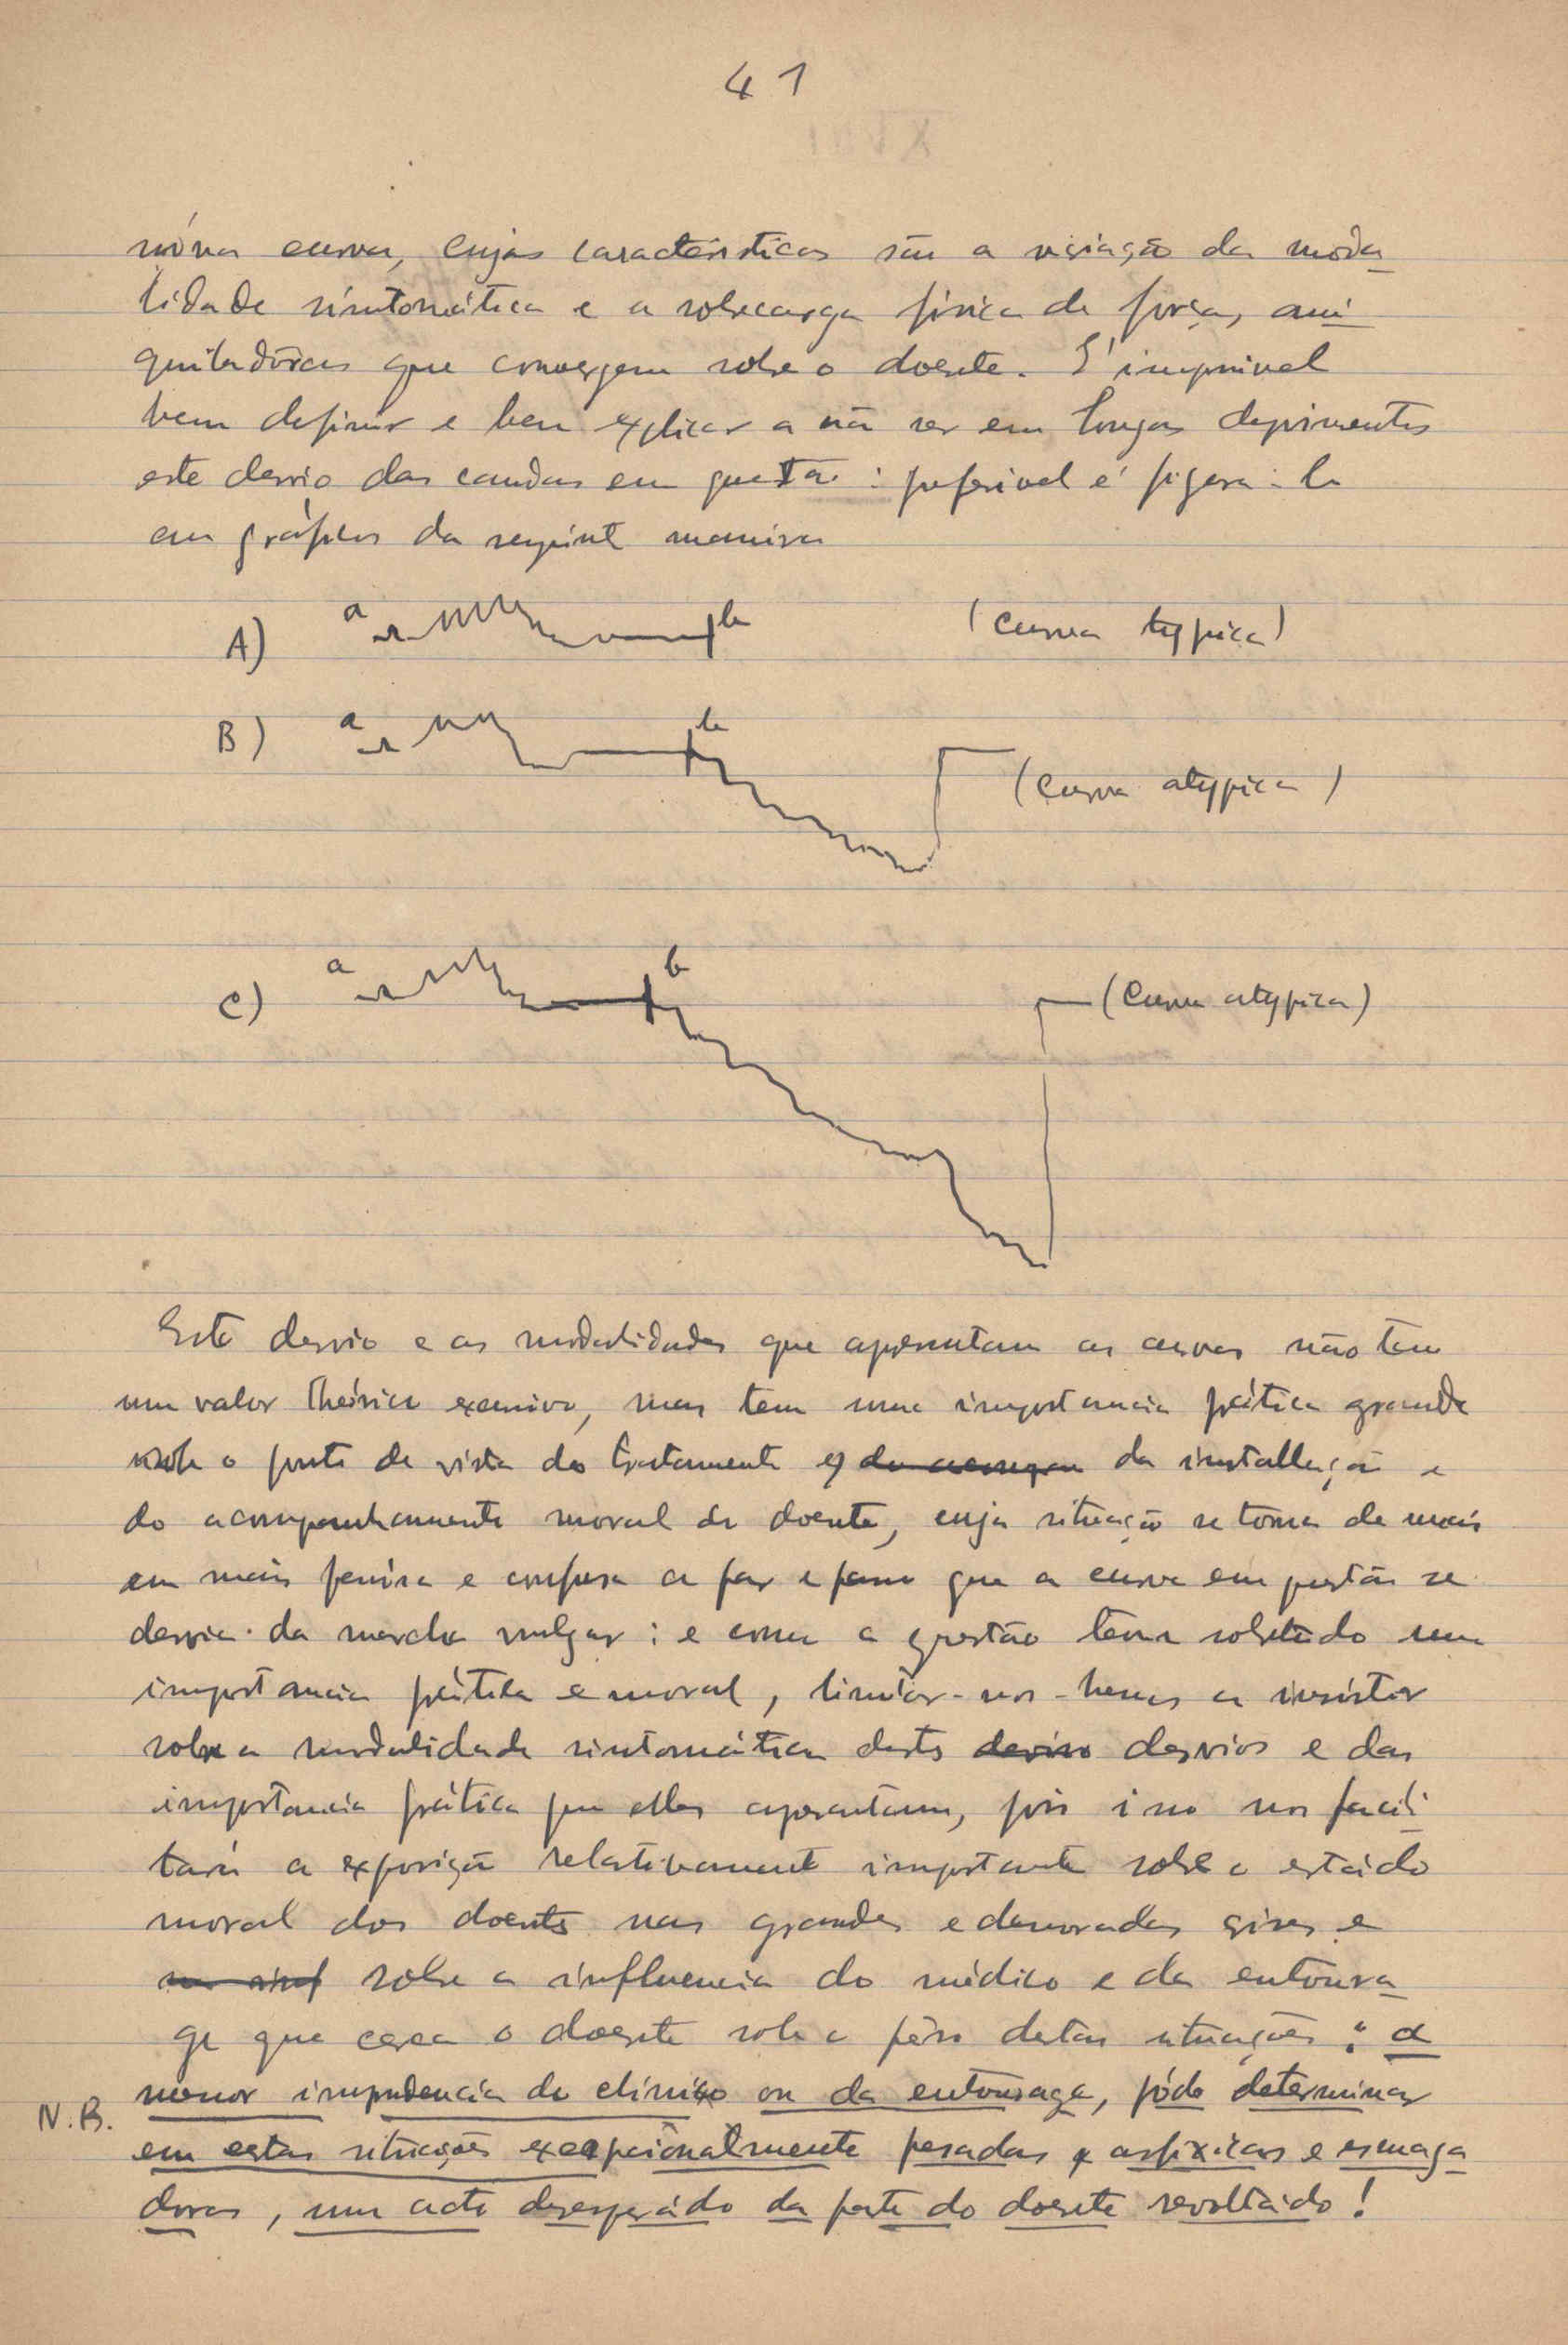 41
nóva curva, cujas caracterìsticas são a viciação da moda
lidade sintomática e a sobrecarga física de forças ani
quiladôras que convergem sobre o doente. E' impossivel
bem definir e bem explicar a não ser em longos depoimentos
este desvio das caudas em questão: preferivel é figura-lo
em gráficos da seguinte maneira
A) a b (curva typica)
B) a b (curva atypica)
C) a b (curva atypica)
Este desvio e as modalidades que apresentam as curvas não tem
um valor theórico excessivo, mas tem uma importancia prática grande
sob o ponto de vista do tratamento e da installação e
do acompanhamento moral do doente, cuja situação se torna de mais
em mais penósa e confusa a par e passo que a curva em questão se
desvia da marcha vulgar: e como a questão tem sobretudo uma
importancia prática e moral, limitar-nos-hemos a insistir
sobre a modalidade sintomática destes desvios e das
importancia prática que elles apresentam, pois isso nos facili
tará a exposição relativamente importante sobre o estádo
moral dos doentes nas grandes e demoradas crises e
sobre a influencia do médico e da entoura
ge que cerca o doente sobre o pêso destas situações: a
menor imprudencia do clinico ou da entourage, póde determinar
N.B.
em estas situações excepcionalmente pesadas, asfixicas e esmaga
doras, um acto desesperádo da parte do doente revoltádo!